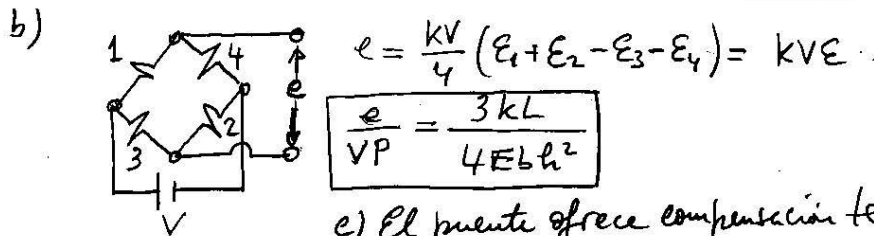 b)
1 4 e 3 2 V
e = kV/4 (ε₁+ε₂-ε₃-ε₄) = kVε.
e/VP = 3kL/4Ebh²
c) El puente ofrece compensación te